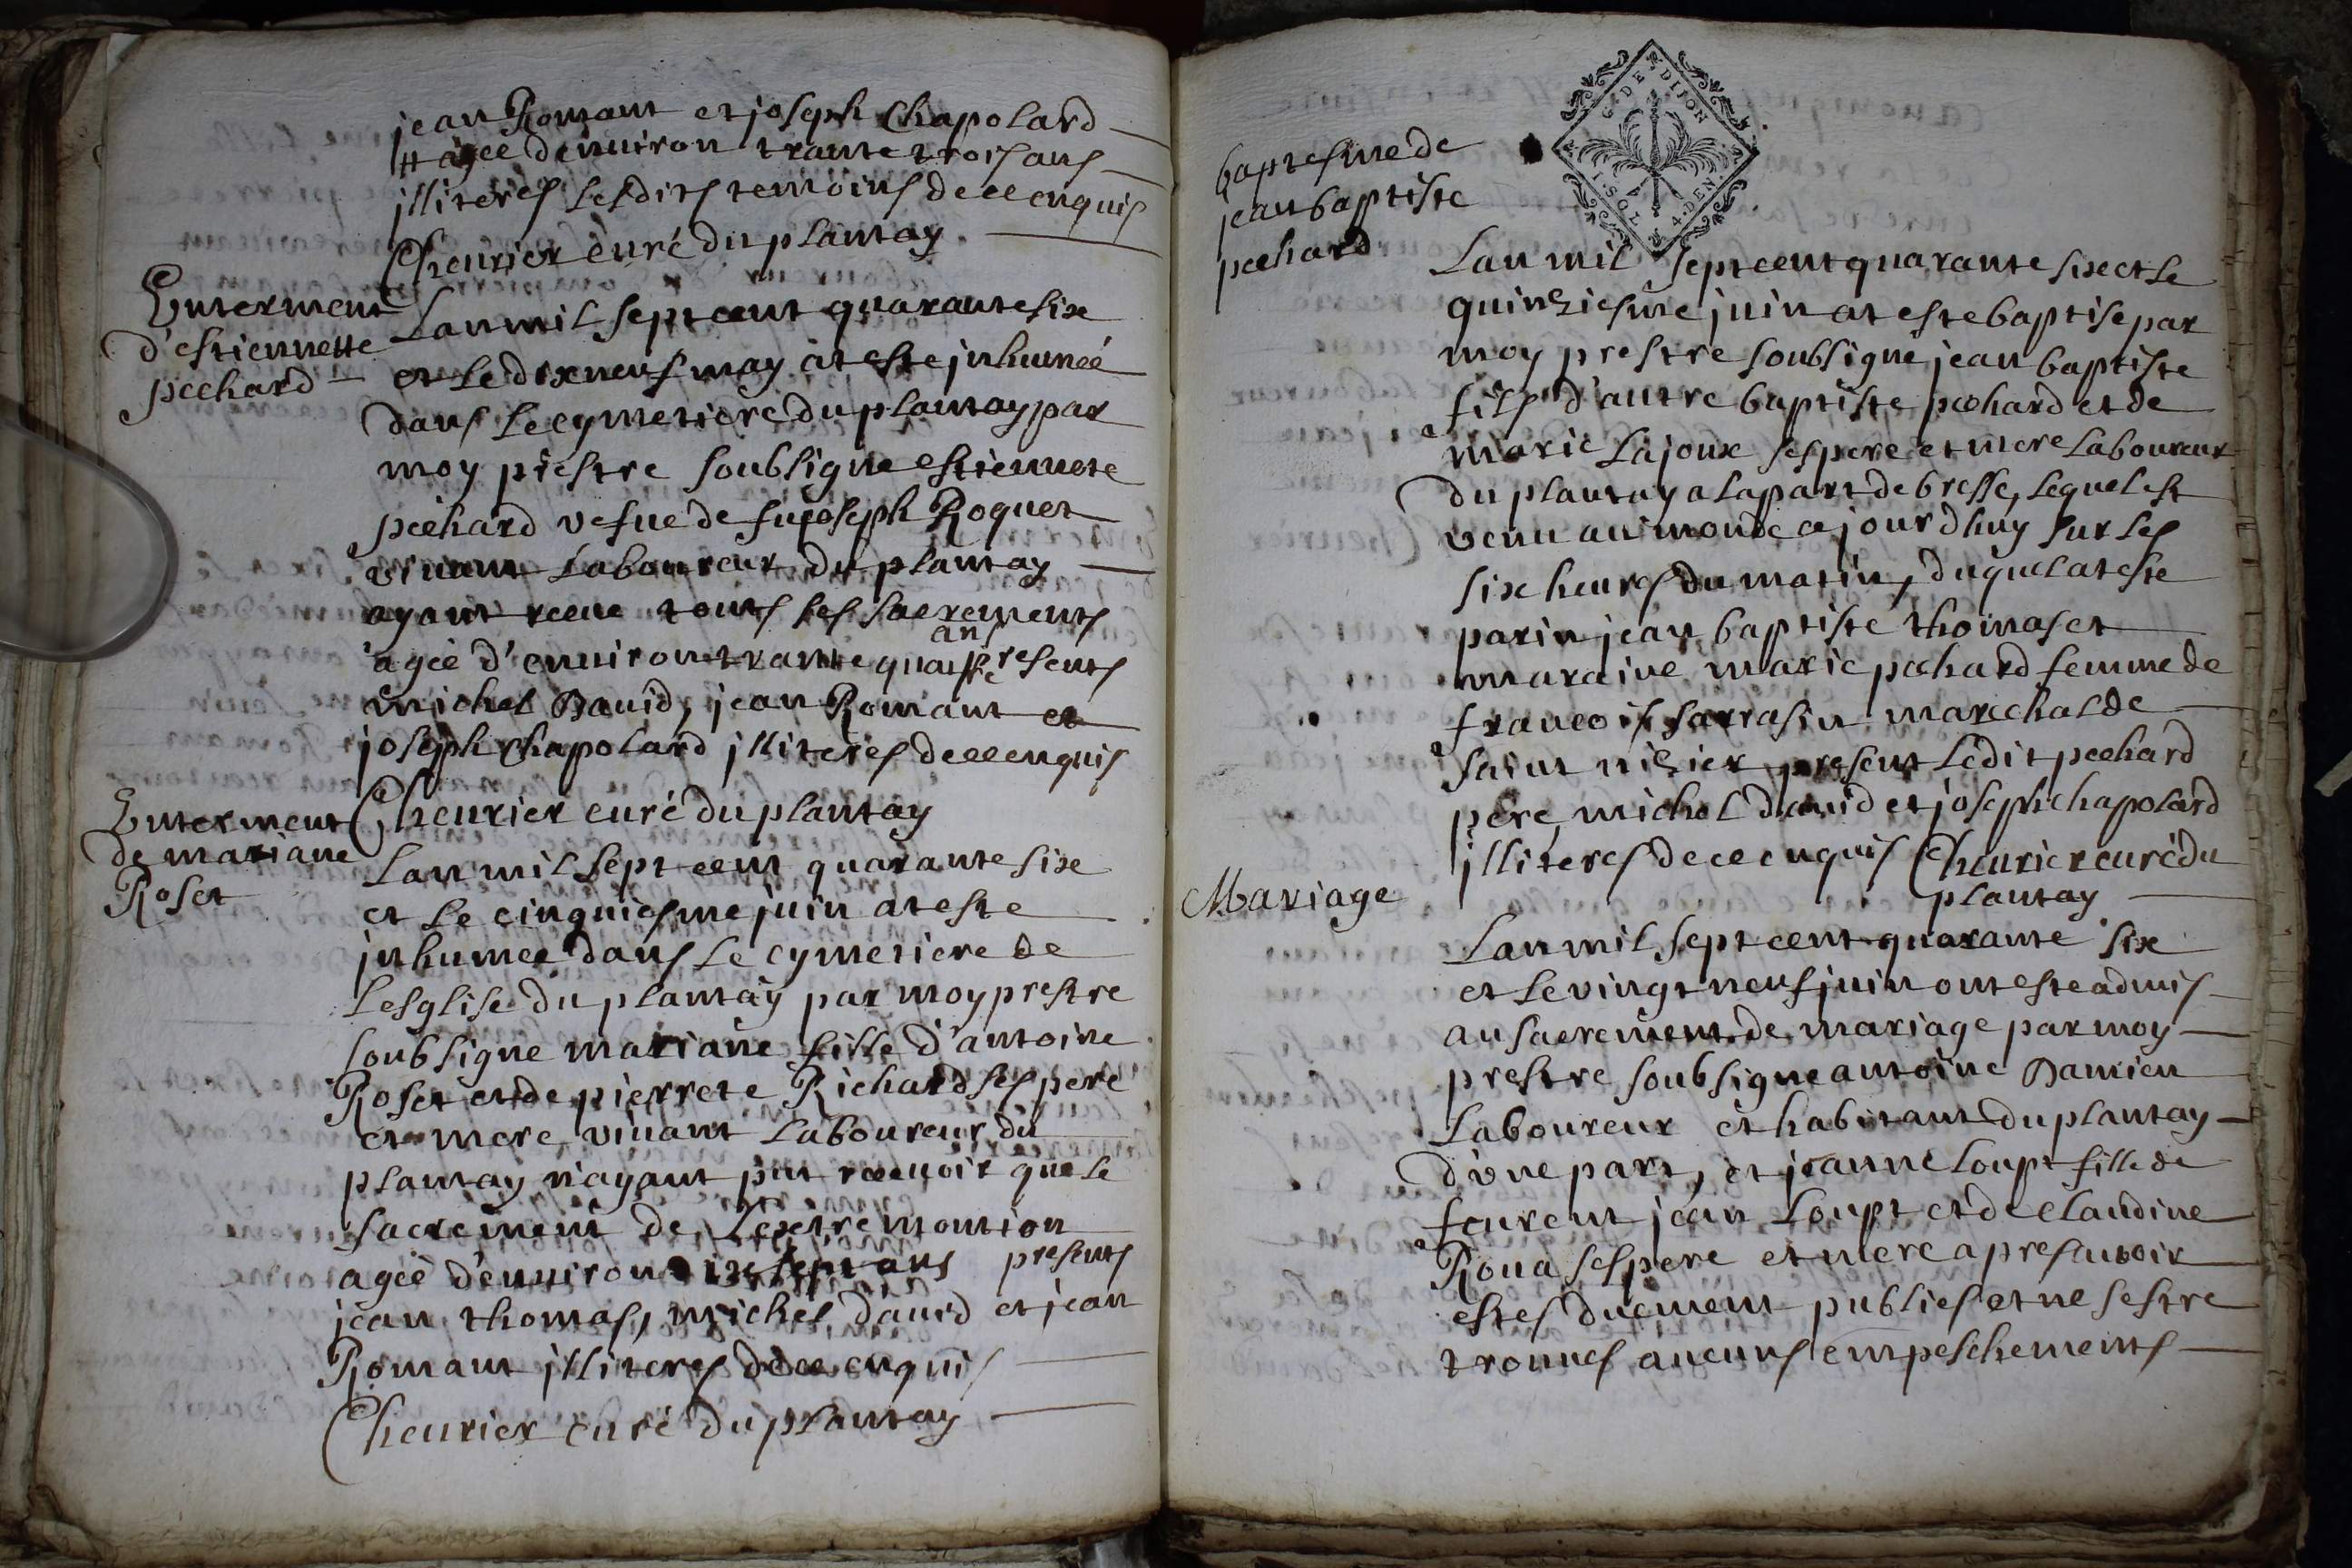 jean Romant et joseph Chapolard
# agee denuiron trante trois ans
illiteres lesdits temoins de ce enquis
Cheurier curé du plantay
Enterment
d'estiennette
pechard
Lan mil sept cent quarante six
et le dixneuf may at este inhumeé
dans le cymetiere du plantay par
moy prestre soubsigne estiennete
pechard vefue de fu joseph Roquet
viuant laboureur du plantay
ayant receue touts les sacrements
agée d'enuiron trante quatre ans presents
michel Dauid, jean Romant et
joseph Chapolard illiteres de ce enquis
Cheurier curé du plantay
Enterment
de mariane
Roset
Lan mil sept cent quarante six
et le cinquiesme juin at este
inhumee dans le cymetiere de
Lesglise du plantay par moy prestre
soubsigne mariane fille d'antoine
Roset et de pierrete Richard ses pere
et mere viuant laboureur du
plantay n'ayant put receuoir que le
sacrement de Lextremontion
agée d'enuiron dix sept ans presents
jean thomas, michel dauid et jean
Romant illiteres de ce enquis
Cheurier curé du plantay
G. DE DIJON
1. SOL 4. DEN.
baptesme de
jean baptiste
pechard
Lan mil sept cent quarante six et le
quinziesme juin at este baptise par
moy prestre soubsigné jean baptiste
fils d'autre baptiste pechard et de
marie Lajoux ses pere et mere laboureur
du plantay a la part de bresse, lequel est
venu au monde ce jourdhuy sur les
six heures du matin, duquel at este
parin jean baptiste thomas et
maraine marie pechard femme de
francois sarrasin marechal de
saint nizier present ledit pechard
pere, michel dauid et joseph chapolard
illiteres de ce enquis Cheurier curé du
plantay
Mariage
Lan mil sept cent quarante six
et le vingt neuf juin ont este admis
au sacrement de mariage par moy
prestre soubsigne antoine Damien
Laboureur et habitant du plantay
d'une part, et jeanne Loupt fille de
feurent jean Loupt et de claudine
Roua ses pere et mere apres auoir
estes duement publies et ne sestre
trouues aucuns empeschements